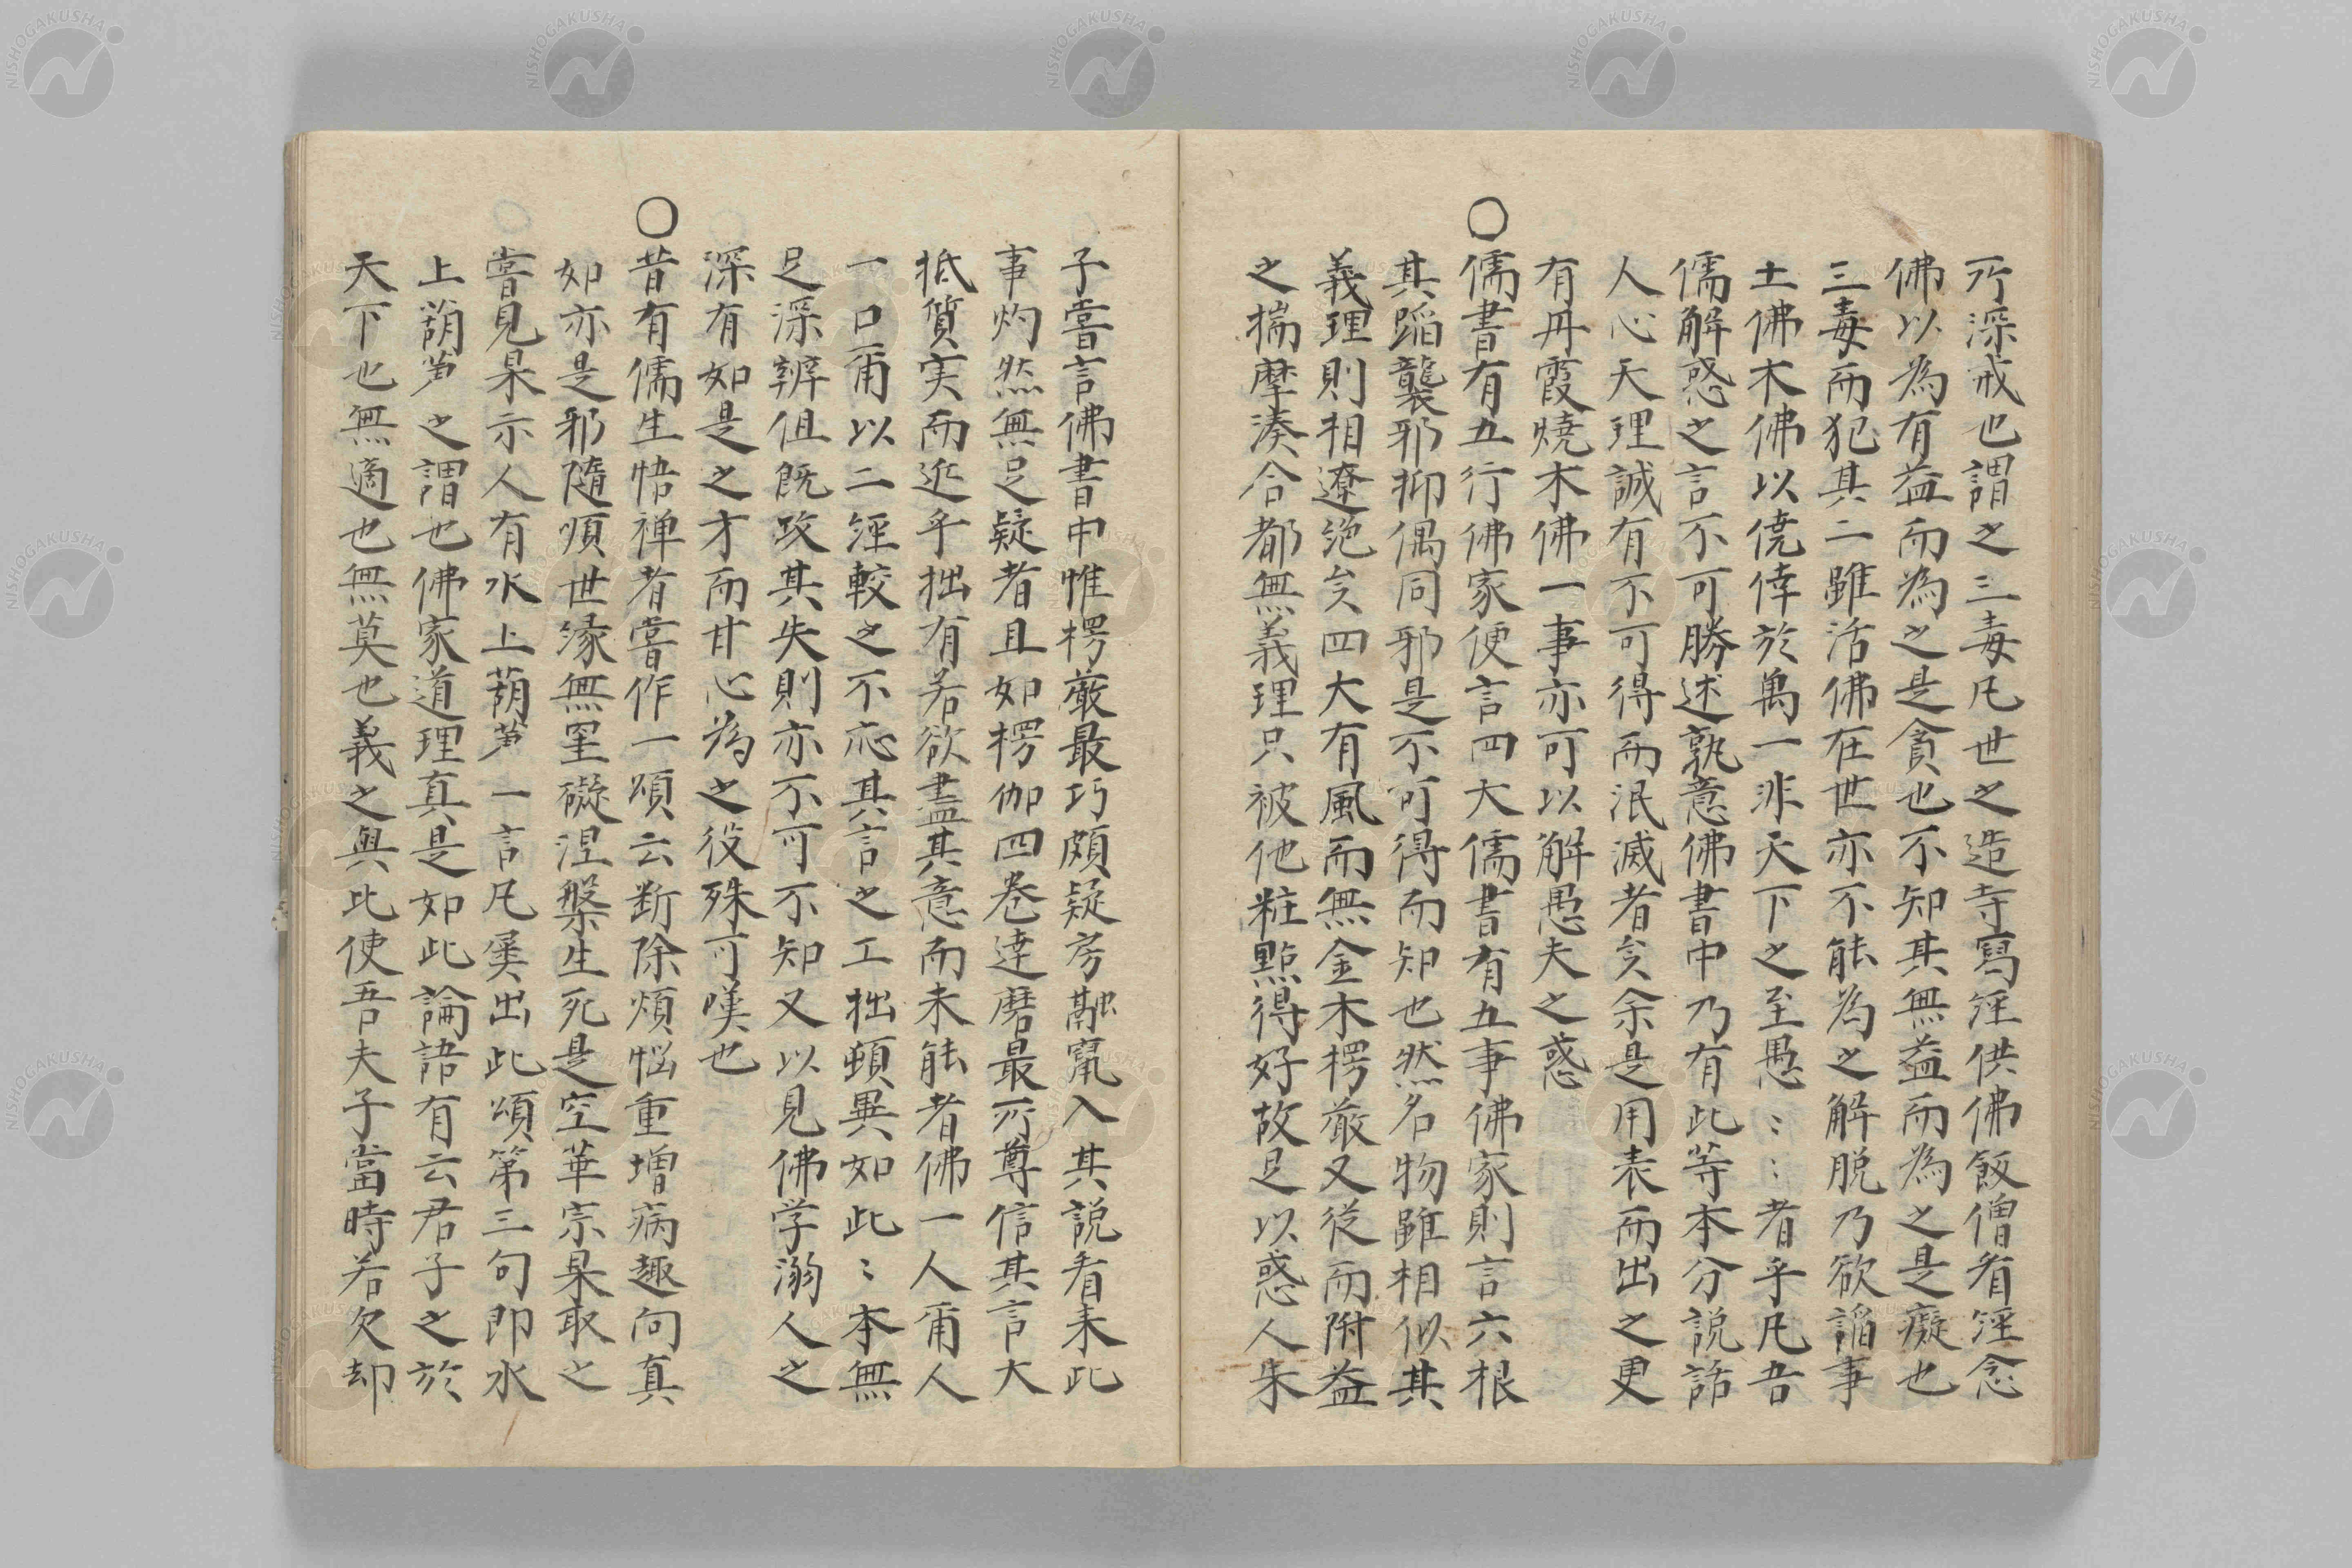 所深戒也謂之三毒凡世之造寺寫経供佛飯僧看経念
佛以為有益而為之是貪也不知其無益而為之是癡也
三毒而犯其二雖活佛在世亦不能為之解脱乃欲謟事
土佛木佛以僥倖於萬一非天下之至愚〻〻者乎凡吾
儒解惑之言不可勝述孰意佛書中乃有此等本分説話
人心天理誠有不可得而泯滅者矣余是用表而出之更
有丹霞燒木佛一事亦可以解愚夫之惑
〇儒書有五行佛家便言四大儒書有五事佛家則言六根
其蹈襲邪抑偶同邪是不可得而知也然名物雖相似其
義理則相遼絶矣四大有風而無金木楞嚴又従而附益
之揣摩湊合都無義理只被他粧點得好故足以惑人朱
子嘗言佛書中惟楞厳最巧頗疑房融竄入其説看来此
事灼然無足疑者且如楞伽四巻達磨最所尊信其言大
抵質実而近乎拙有若欲盡其意而未能者佛一人甭人
一口甭以二経較之不応其言之工拙頓異如此〻本無
足深辨但既攻其失則亦不可不知又以見佛学溺人之
深有如是之才而甘心為之役殊可嘆也
〇昔有儒生悟禅者嘗作一頌云断除煩悩重増病趣向真
如亦是邪隨順世縁無罣礙涅槃生死是空華宗杲取之
嘗見杲示人有水上葫芦一言凡屡出此頌第三句即水
上葫芦之謂也佛家道理真是如此論語有云君子之於
天下也無適也無莫也義之與比使吾夫子當時若欠却
NISHOGAKUSHA